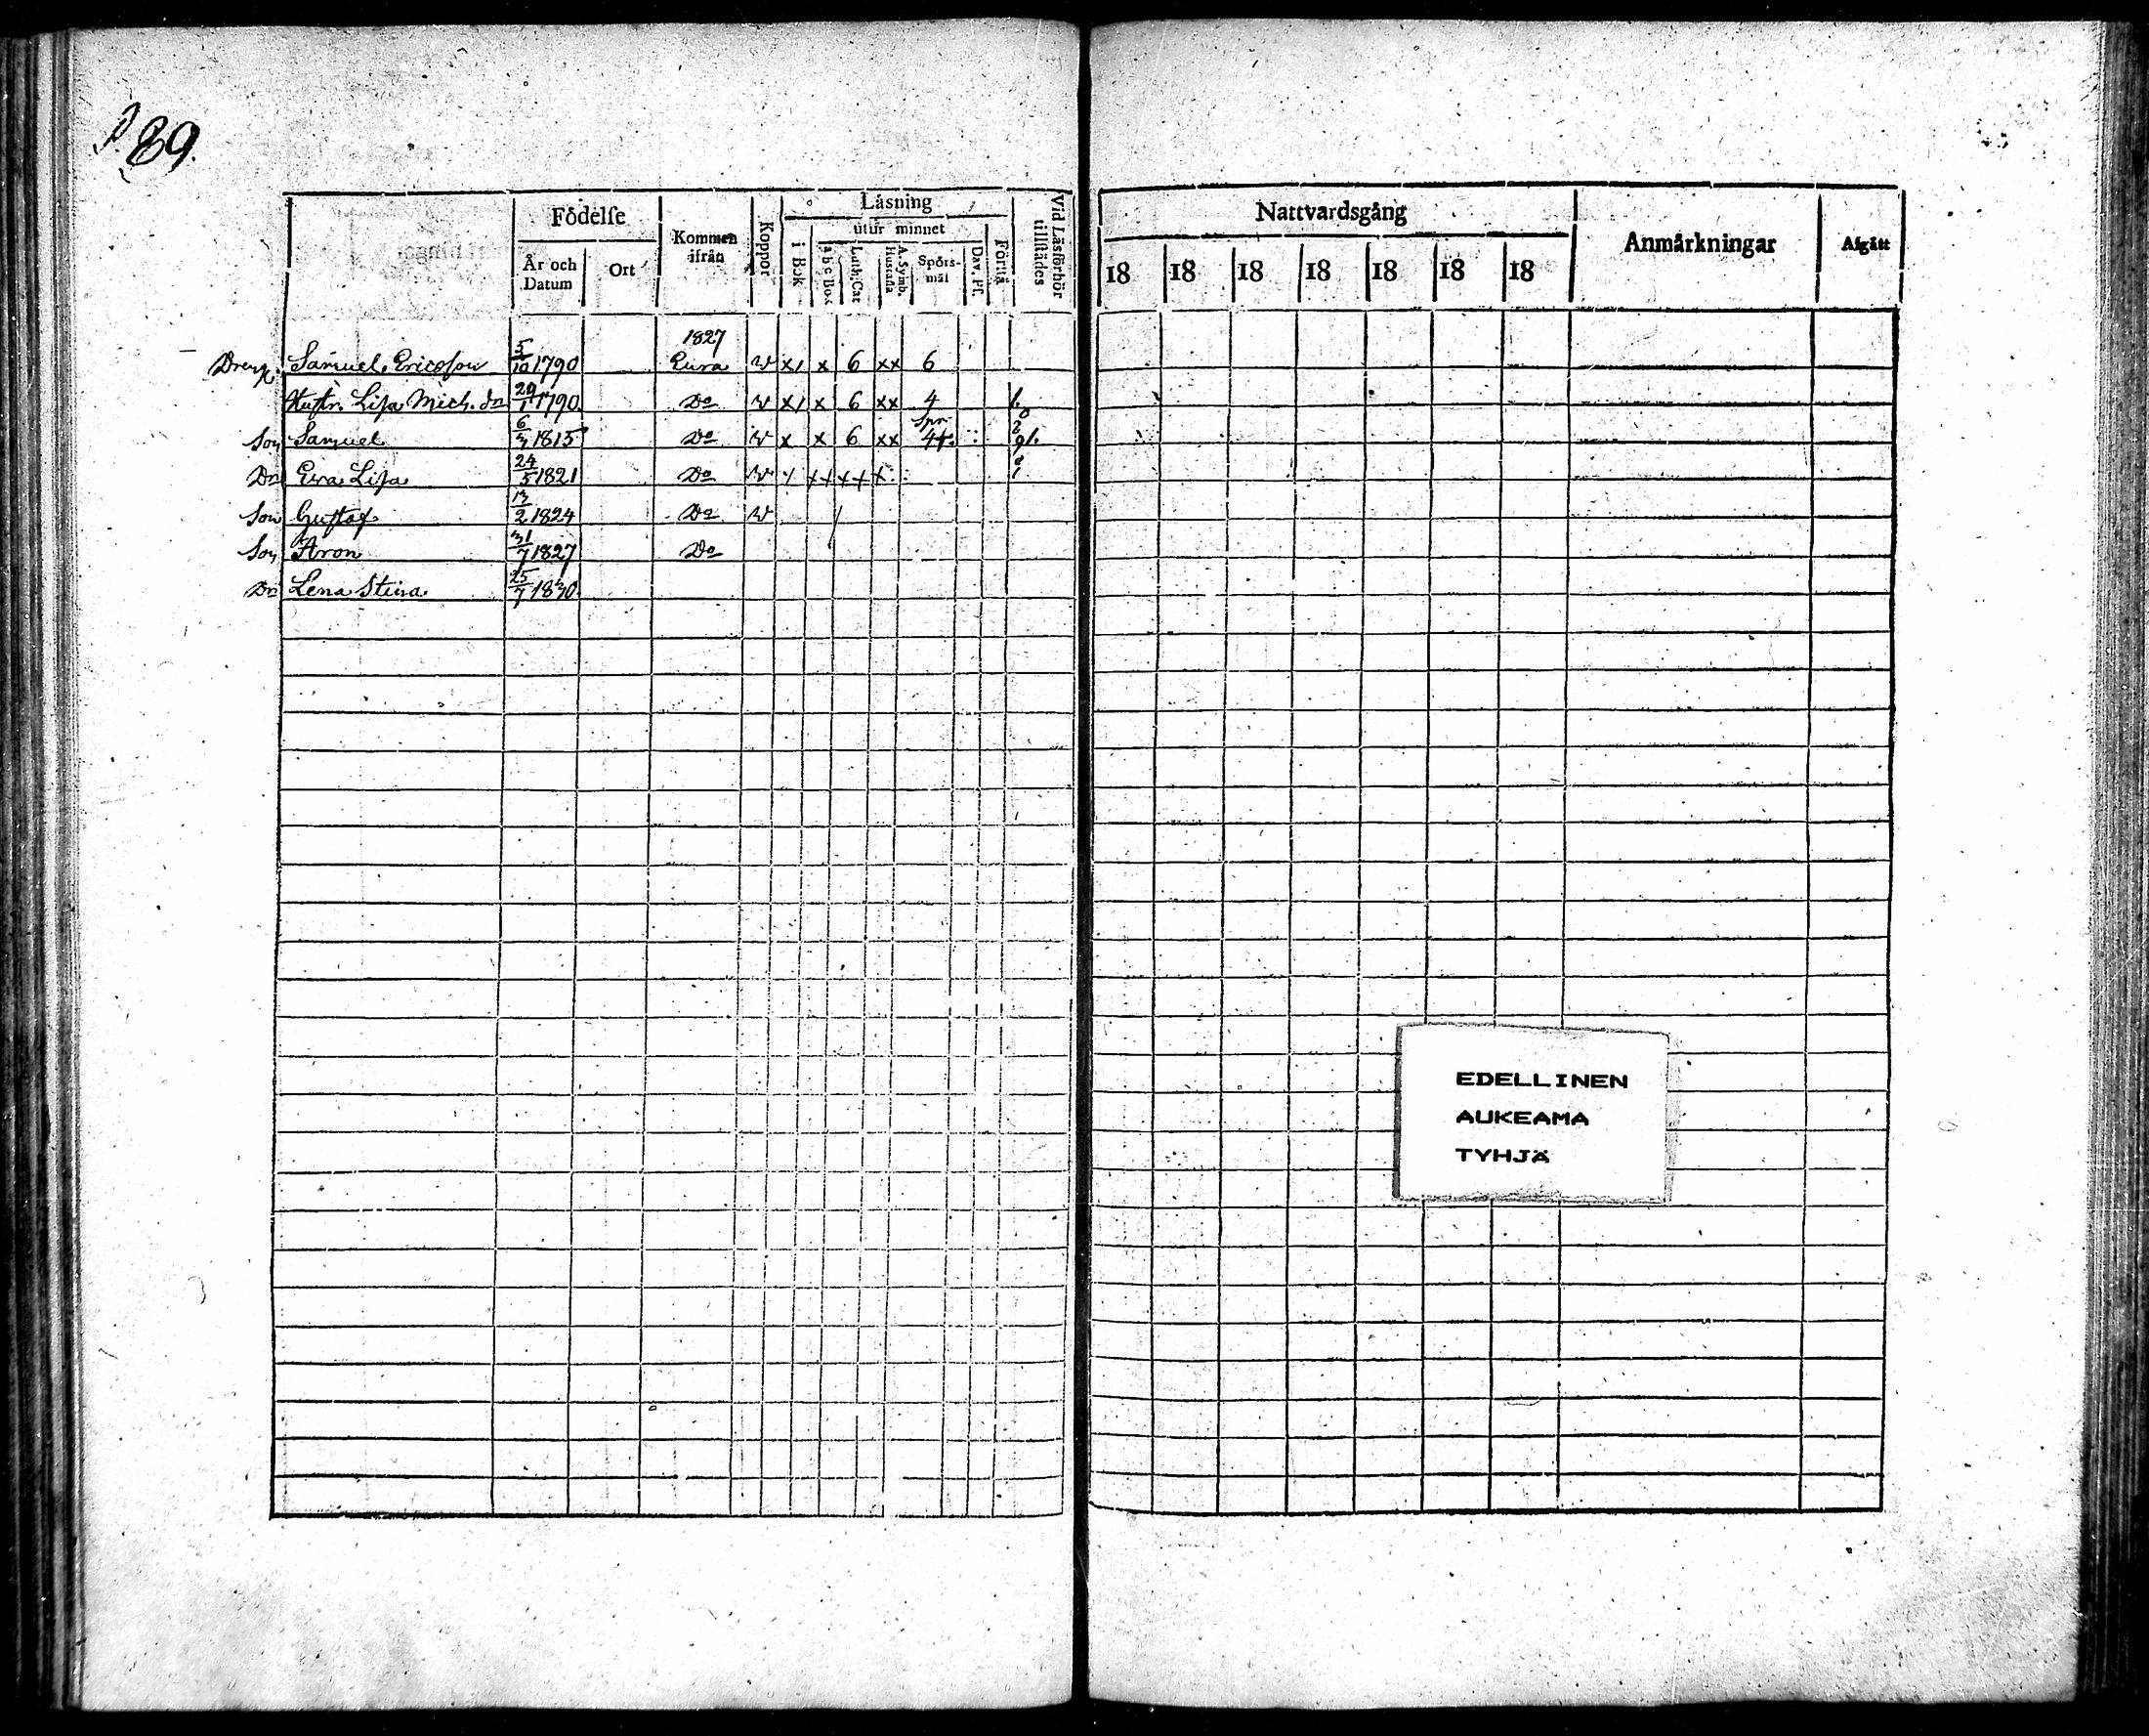 189.
Födelse
Kommen ifrån
Koppor
Läsning
Vid Läsförhör tillstädes
År och Datum
Ort
i Bok
utur minnet
a b c Bok
Luth. Cat
A. Symb. Hustafla
Spörsmål
Dav. Ps.
Förstå
Nattvardsgång
Anmärkningar
Afgått
18 18 18 18 18 18 18
1827
Dreng Samuel Ericsson 5/10 1790 Eura v x x 6 xx 6
Hustr. Lisa Mich. dr 29/1 1790 Do v x x 6 xx 4
Son Samuel 6/3 1815 Do v x x 6 xx Spr 4
Dr Eva Lisa 24/5 1821 Do v
Son Gustaf 13/2 1824 Do v
Son Aron 31/7 1827 Do
Dr Lena Stina 25/7 1830
EDELLINEN
AUKEAMA
TYHJÄ